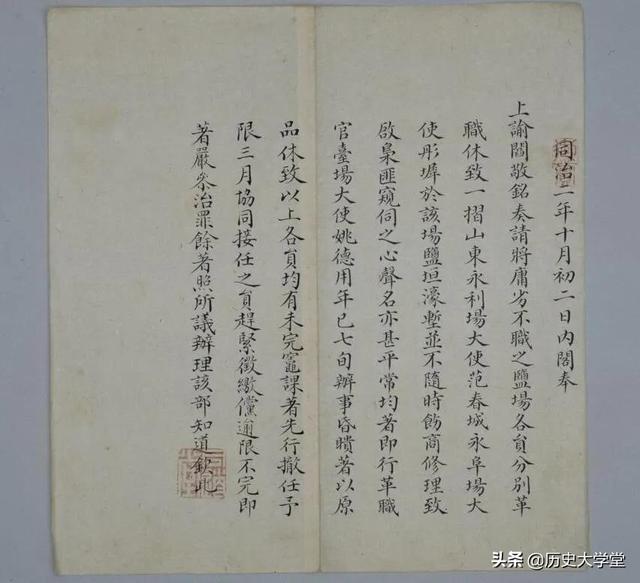 同治二年十月初二日内閣奉
上諭閻敬銘奏請將庸劣不職之鹽場各員分別革
職休致一摺山東永利場大使范春城永阜場大
使彤墀於該場鹽垣濠塹並不隨時飭商修理致
啟梟匪窺伺之心聲名亦甚平常均著即行革職
官臺場大使姚德用年已七旬辦事昏聵著以原
品休致以上各員均有未完竈課著先行撤任予
限三月協同接任之員趕緊徵繳儻逾限不完即
著嚴參治罪餘著照所議辦理該部知道欽此
头条 @历史大学堂